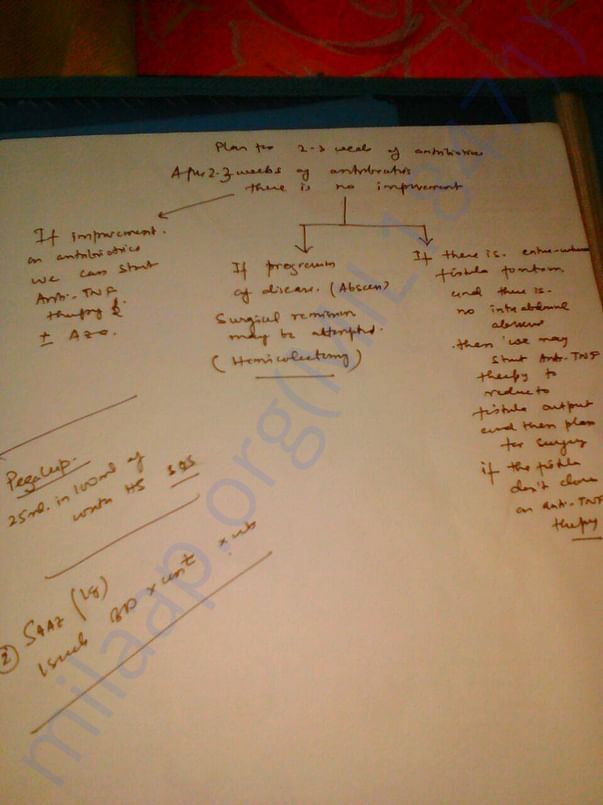 Plan for 2-3 weeks of antibiotics
After 2-3 weeks of antibiotics
there is no improvement
If improvement
on antibiotics
we can start
Anti-TNF
therapy
± AZA.
If progression
of disease. (Abscess)
Surgical
may be attempted.
(Hemicolectomy)
If there is
fistula
and there is
no intrabdominal
abscess
then we may
start Anti-TNF
therapy to
reduce
fistula output
and then plan
for surgery
if the fistula
don't close
on anti-TNF
therapy
Peglup.
25ml. in 100ml of
water HS SOS
② SAAZ (1g)
BD x cont
milaap.org(MIL18471)